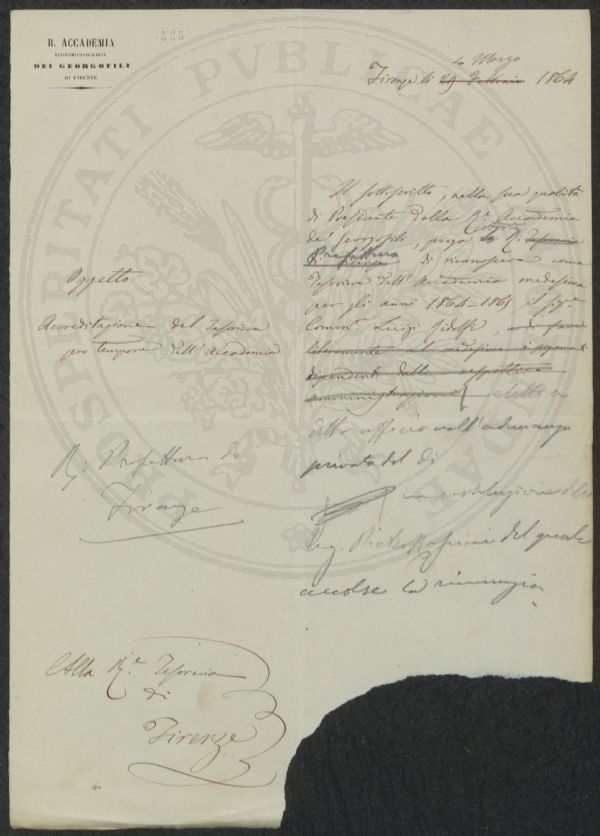 R. ACCADEMIA
ECONOMICO-AGRARIA
DEI GEORGOFILI
DI FIRENZE
585
PROSPERITATI PUBLICAE AUGENDAE
Firenze li 29 Febbraio 1864
4 Marzo
Oggetto
Accreditazione del Tesoriere
pro tempore dell'Accademia
R. Prefettura di
Firenze
Alla R.e Tesoreria
di
Firenze
Il sottoscritto, nella sua qualità
di Presidente della R.e Accademia
de' Georgofili, prega la R. Tesoreria
Prefettura
di riconoscere come
Tesoriere dell'Accademia medesima
per gli anni 1864-1865 il Sig.
Comm. Luigi Ridolfi, e di fare
liberamente al medesimo i pagamenti
dipendenti dalle respettive
amministrazioni eletto a
detto ufficio nell'adunanza
privata del dì
in sostituzione del
Ing. del quale
accolse la rinunzia